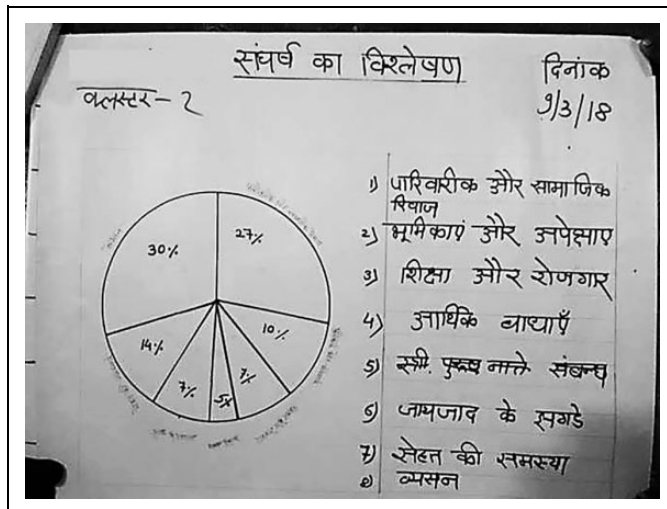 संघर्ष का विश्लेषण
दिनांक
9/3/18
क्लस्टर - 2
27%
30%
10%
14%
7%
7%
5%
1) पारिवारीक और सामाजिक
रिवाज
2) भूमिकाएं और अपेक्षाए
3) शिक्षा और रोजगार
4) आर्थिक बाधाएँ
5) स्त्री पुरुष नाते संबन्ध
6) जायजाद के झगडे
7) सेहत की समस्या
8) व्यसन